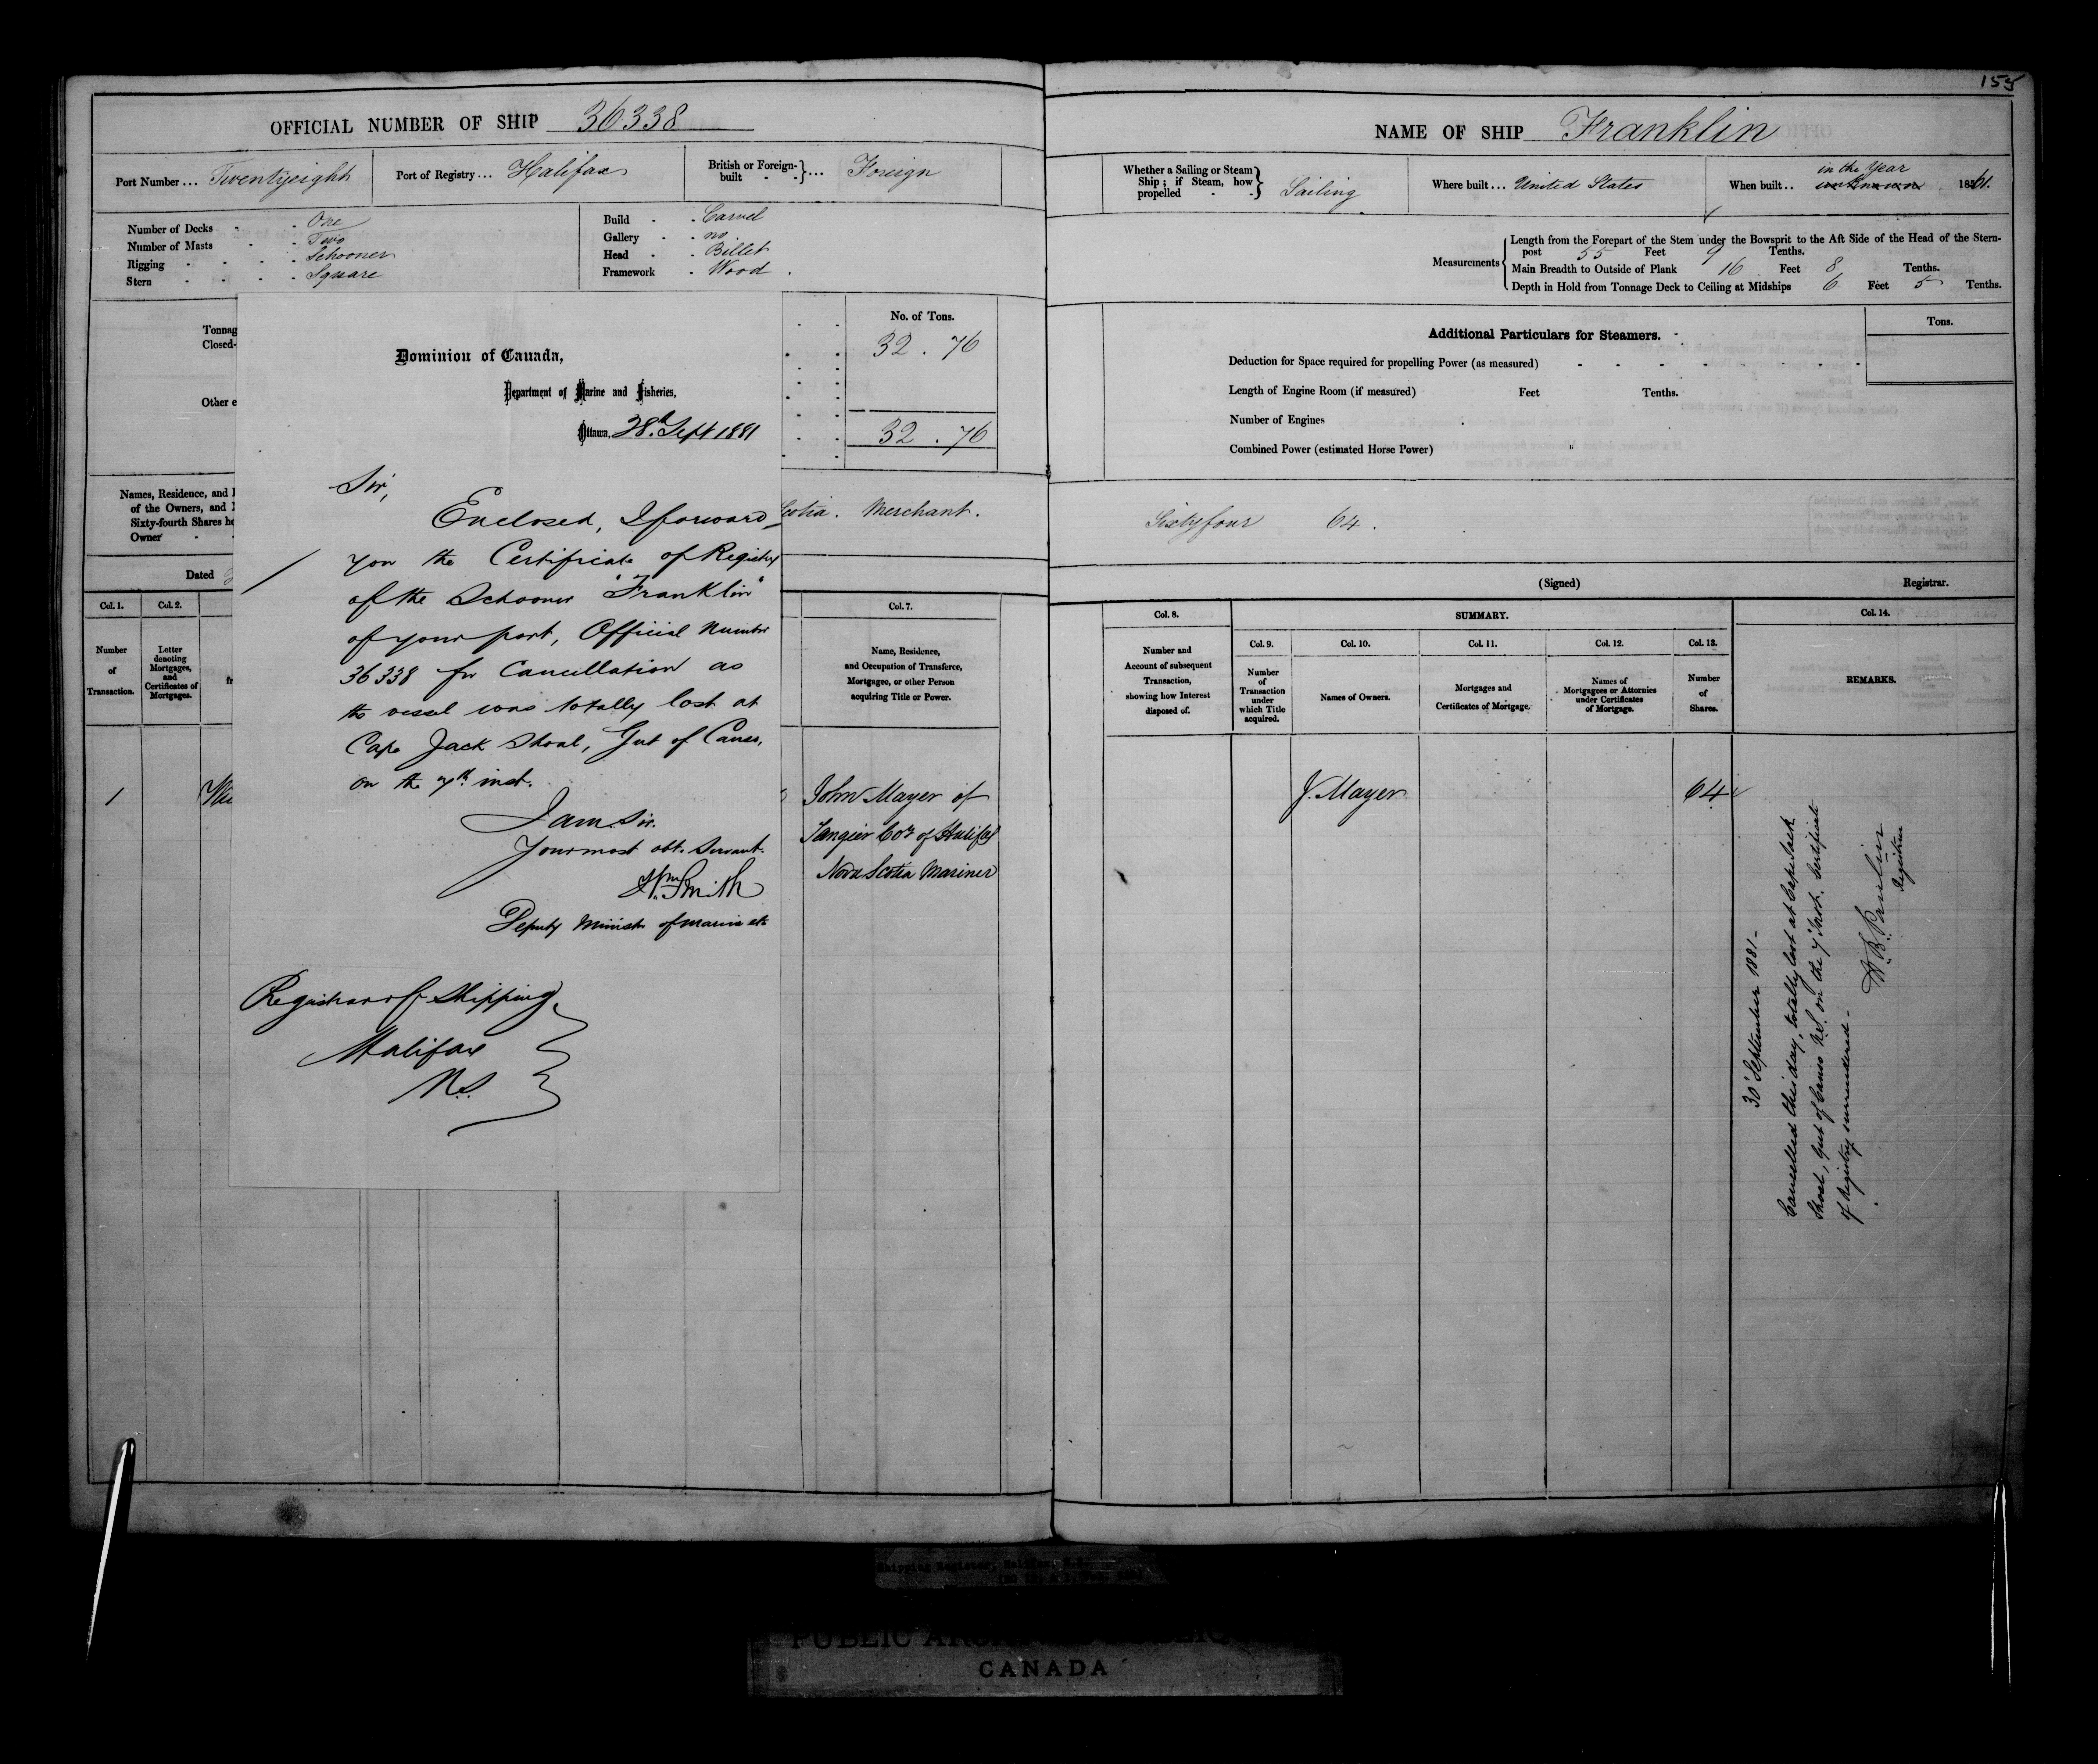 155
OFFICIAL NUMBER OF SHIP 36338
Port Number ... Twentyeight
Port of Registry ... Halifax
British or Foreign-built - - } ... Foreign
Number of Decks - - One
Number of Masts - - Two
Rigging - - - - Schooner
Stern - - - - Square
Build - - Carvel
Gallery - - no
Head - - Billet
Framework - Wood .
Tonnag
Closed-
Other e
No. of Tons.
32 . 76
32 . 76
Names, Residence, and
of the Owners, and
Sixty-fourth Shares he
Owner -
Scotia . Merchant .
Dated
Col. 1.
Col. 2.
Col. 7.
Number of Transaction.
Letter denoting Mortgages, and Certificates of Mortgages.
fr
Name, Residence,
and Occupation of Transferee,
Mortgagee, or other Person
acquiring Title or Power.
1
John Mayer of
Tangier Coy of Halifax
Nova Scotia Mariner
Dominion of Canada,
Department of Marine and Fisheries,
Ottawa, 28th Sept 1881
Sir,
Enclosed, I forward
you the Certificate of Registry
of the Schooner "Franklin"
of your port, Official Number
36338 for Cancellation as
the vessel was totally lost at
Cape Jack Shoal, Gut of Canso,
on the 7th inst.
I am Sir.
Your most obt. Servant.
Wm Smith
Deputy Minister of Marine etc
Registrar of Shipping
Halifax
N.S.
NAME OF SHIP Franklin
Whether a Sailing or Steam
Ship ; if Steam, how
propelled - - } Sailing
Where built ... United States
When built .. in the Year
unknown 1861.
Measurements
Length from the Forepart of the Stem under the Bowsprit to the Aft Side of the Head of the Stern-
post 55 Feet 9 Tenths.
Main Breadth to Outside of Plank 16 Feet 8 Tenths.
Depth in Hold from Tonnage Deck to Ceiling at Midships 6 Feet 5 Tenths.
Additional Particulars for Steamers.
Tons.
Deduction for Space required for propelling Power (as measured)
Length of Engine Room (if measured) Feet Tenths.
Number of Engines
Combined Power (estimated Horse Power)
Sixtyfour 64 .
(Signed) Registrar.
Col. 8.
SUMMARY.
Col. 14.
Col. 9.
Col. 10.
Col. 11.
Col. 12.
Col. 13.
Number and
Account of subsequent
Transaction,
showing how Interest
disposed of.
Number of Transaction under which Title acquired.
Names of Owners.
Mortgages and
Certificates of Mortgage.
Names of
Mortgagees or Attornies
under Certificates
of Mortgage.
Number of Shares.
REMARKS.
J. Mayer
64
30 September 1881 -
Cancelled this day, totally lost at Cape Jack
Shoal, Gut of Canso N.S. on the 7 Inst. Certificate
of Registry surrendered -
Registrar
Shipping Register, Halifax, N.S.
CANADA